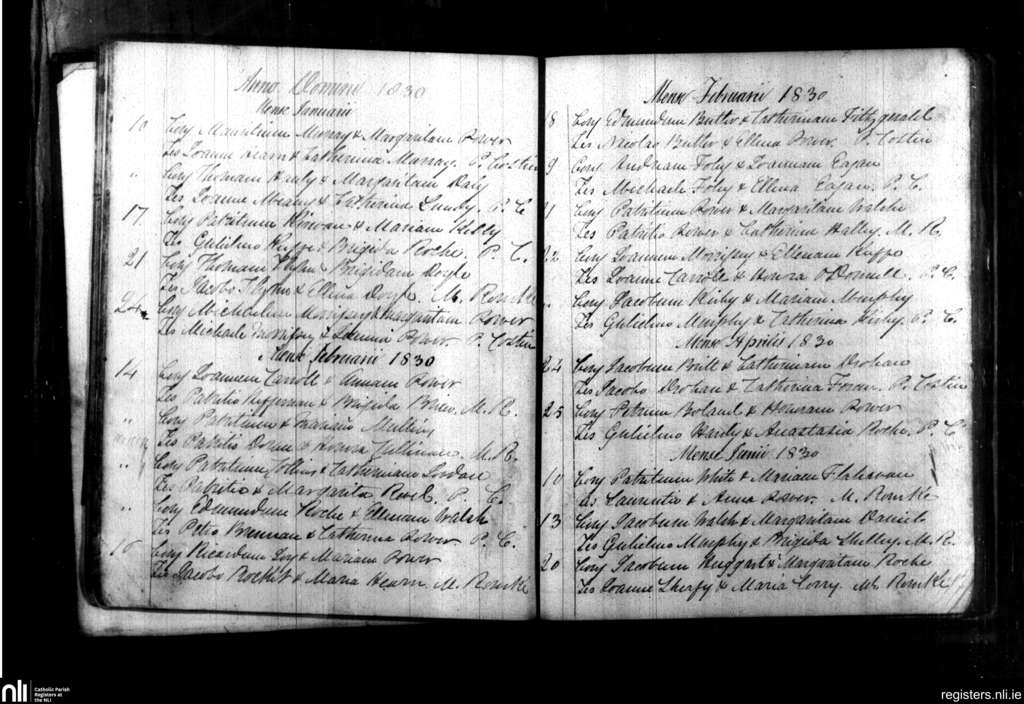 Anno Domini 1830
Mense Januarii
10 Conj Mauritium Murray & Margaritam Power
Tes Joanne Hearn & Catherina Murray. P. Costin
" Conj Thomam Healy & Margaritam Daly
Tes Joanne Meany & Catherina Lundy. P. C
17 Conj Patritium Kirwan & Mariam Kelly
Tes Gulielmo Kuffe & Brigida Roche. P. C.
21 Conj Thomam & Brigidam Doyle
Tes Jacobo & Ellena Doyle. M. Rourke
24 Conj Michaelem Morrissy & Margaritam Power
Tes Michaele Morrissy & Joanna Power P. Costin
Mense Februarii 1830
14 Conj Joannem Carroll & Annam Power
Tes Patritio Heffernan & Brigida Brien. M. R.
" Conj Patritium & Mariam Mullins
Tes Patritio & Honora Cullinane. M. R.
" Conj Patritium Collins & Catherinam
Tes Patritio & Margarita P. C.
" Conj Edmundum Roche & Ellenam Walsh
Tes Petro Brennan & Catherina Power P. C.
16 Conj Ricardum & Mariam Power
Tes Jacobo Rockit & Maria Hearn M. Rourke
Mense Februarii 1830
8 Conj Edmundum Butler & Catherinam Fitzgerald
Tes Nicolao Butler & Ellena Power. P. Costin
9 Conj Andream Foley & Joannam Eagan
Tes Michaele Foley & Ellena Eagan. P. C.
21 Conj Patritium Power & Margaritam Walsh
Tes Patritio Power & Catherina Halley. M. R.
22 Conj Joannem Morrissy & Ellenam Kuffe
Tes Joanne Carroll & Honora O'Donnell. P. C.
Conj Jacobum Kirby & Mariam Murphy
Tes Gulielmo Murphy & Catherina Kirby. P. C.
Mense Aprilis 1830
24 Conj Jacobum Britt & Catherinam Drohan
Tes Jacobo Drohan & Catherina P. Costin
25 Conj Petrum Boland & Honoram Power
Tes Gulielmo Hardy & Anastasia Roche. P. C.
Mense Junii 1830
10 Conj Patritium White & Mariam Flahavan
Tes Laurentio & Anna Power. M. Rourke
13 Conj Jacobum Walsh & Margaritam Daniels
Tes Gulielmo Murphy & Brigida M. R.
20 Conj Jacobum Huggart & Margaritam Roche
Tes Joanne & Maria Corry. M. Rourke
nli
Catholic Parish
Registers at
the NLI
registers.nli.ie